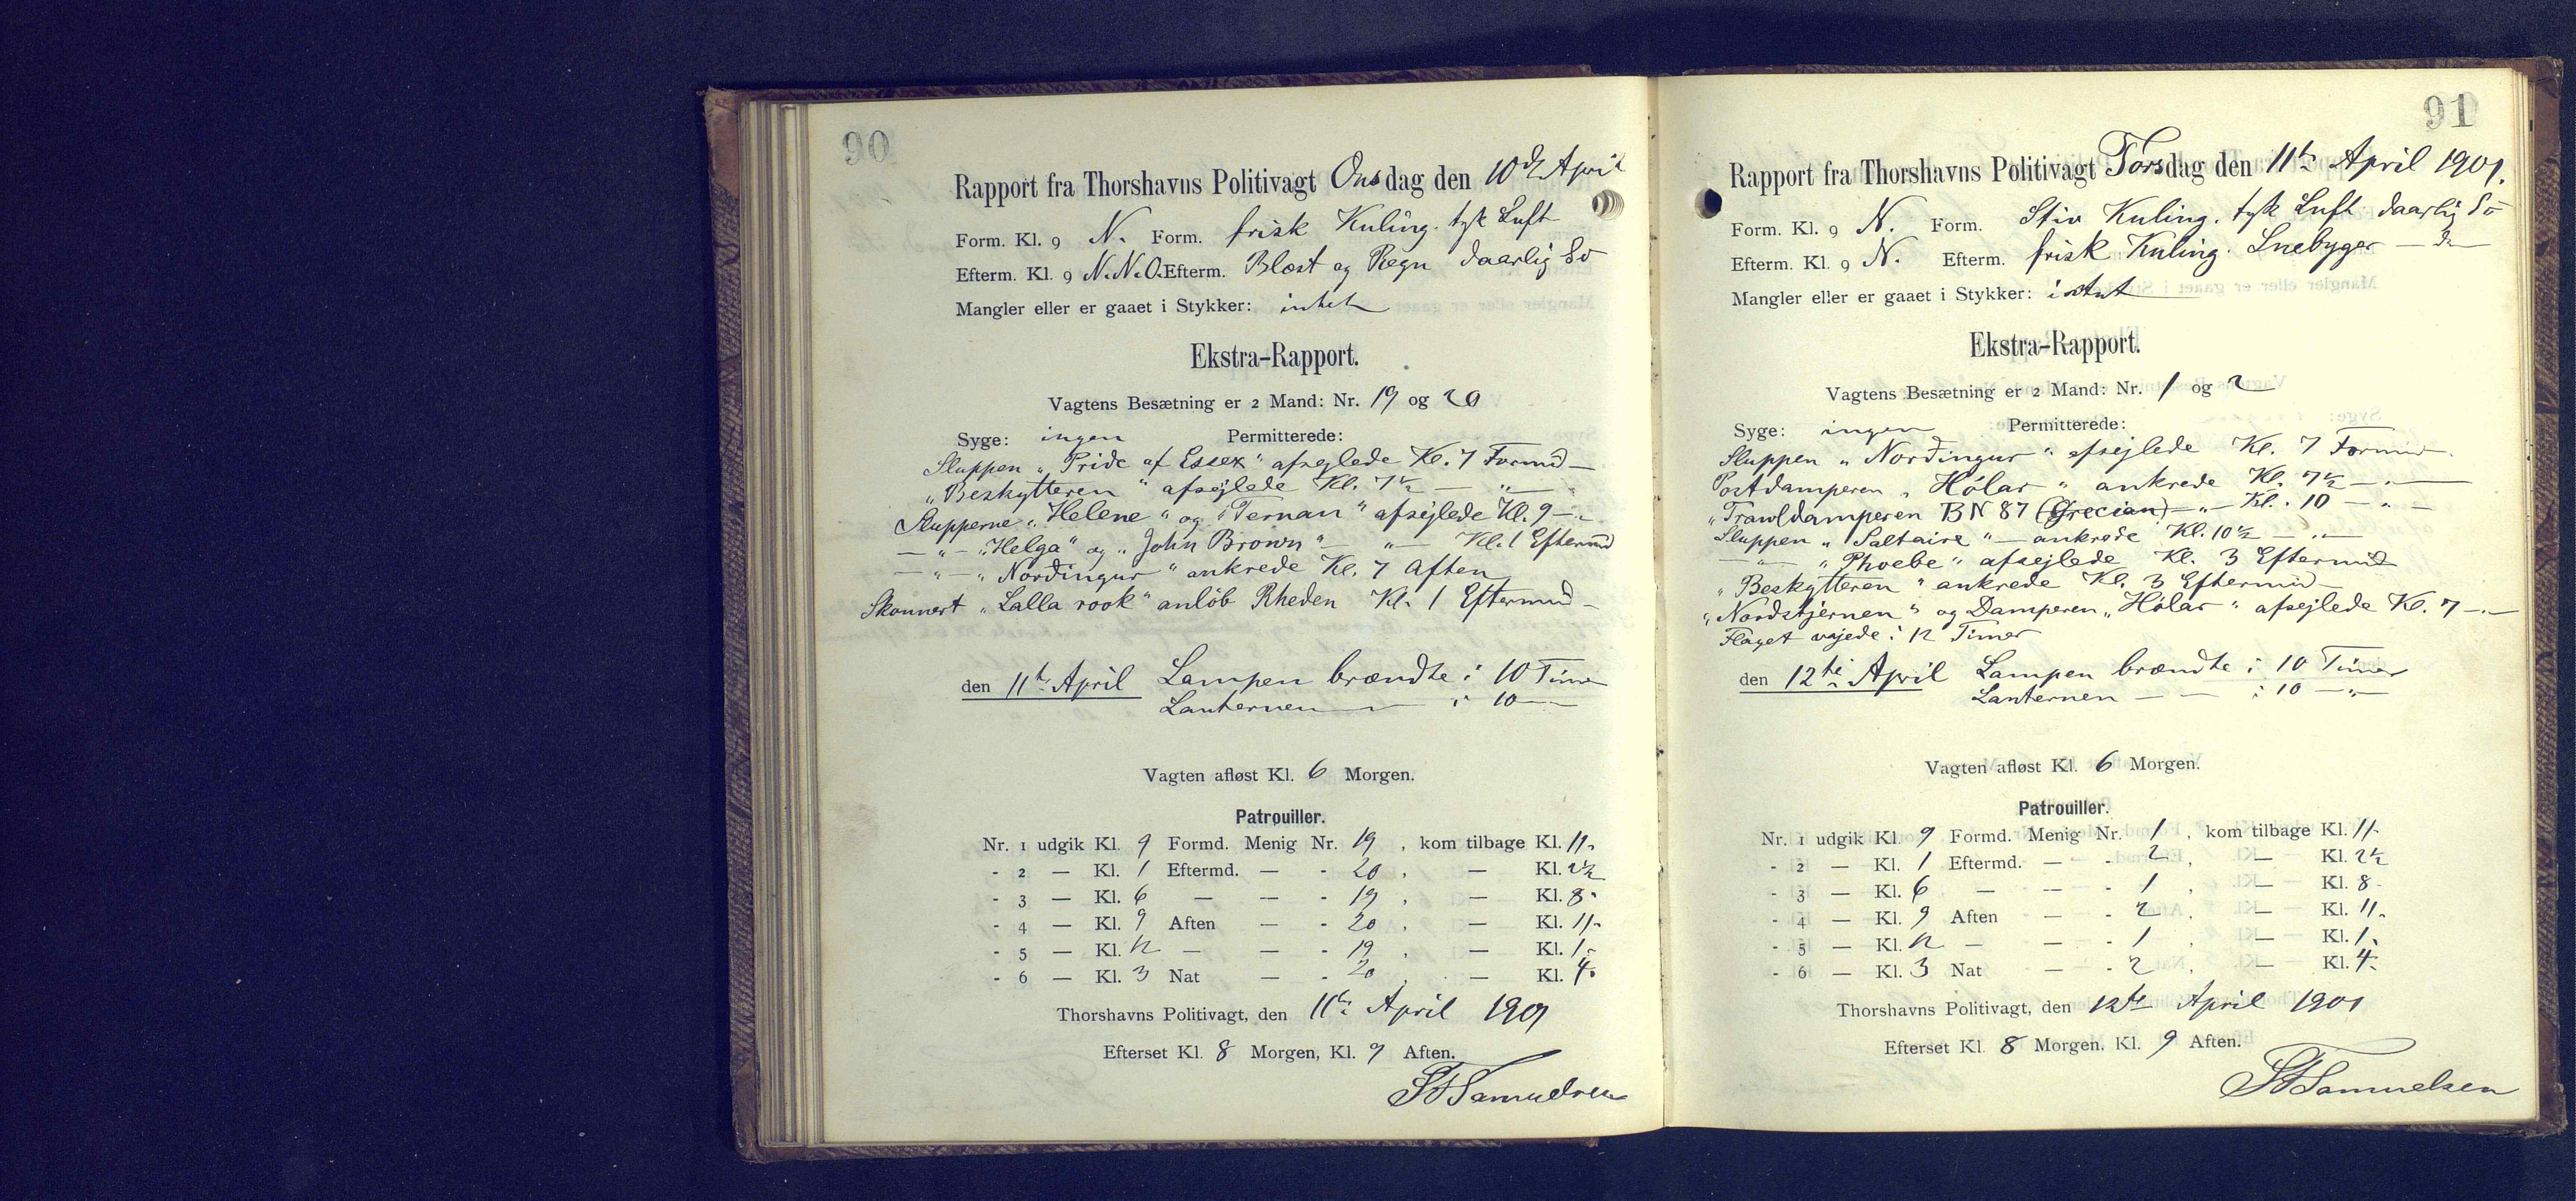 90
Rapport fra Thorshavns Politivagt Onsdag den 10de April
Form. Kl. 9 N. Form. frisk Kuling. tyk Luft
Efterm. Kl. 9 N.N.O. Efterm. Blæst og Regn daarlig Sö
Mangler eller er gaaet i Stykker: intet
Ekstra-Rapport.
Vagtens Besætning er 2 Mand: Nr. 19 og 20
Syge: ingen Permitterede:
Sluppen „Pride of Essex" afsejlede Kl. 7 Formd —
„Beskytteren" afsejlede Kl. 7½ — „ —
Slupperne „Helene" og „Ternan" afsejlede Kl. 9 — „
— „ — „Helga" og „John Brown" — „ — Kl. 1 Eftermd
— „ — „Norðingur" ankrede Kl. 7 Aften
Skonnert „Lalla rook" anlöb Rheden Kl. 1 Eftermd —
den 11te April Lampen brændte i 10 Timer
Lanternen — i 10 —
Vagten afløst Kl. 6 Morgen.
Patrouiller.
Nr. 1 udgik Kl. 9 Formd. Menig Nr. 19, kom tilbage Kl. 11.
- 2 — Kl. 1 Eftermd. — - 20, — Kl. 2½
- 3 — Kl. 6 — — - 19, — Kl. 8.
- 4 — Kl. 9 Aften — - 20, — Kl. 11.
- 5 — Kl. 12 — — - 19, — Kl. 1.
- 6 — Kl. 3 Nat — - 20, — Kl. 4.
Thorshavns Politivagt, den 11te April 1901
Efterset Kl. 8 Morgen, Kl. 9 Aften.
Samuelsen
91
Rapport fra Thorshavns Politivagt Torsdag den 11te April 1901.
Form. Kl. 9 N. Form. Stiv Kuling. tyk Luft daarlig Sö
Efterm. Kl. 9 N. Efterm. frisk Kuling. Snebyger — do —
Mangler eller er gaaet i Stykker: intet
Ekstra-Rapport.
Vagtens Besætning er 2 Mand: Nr. 1 og 2
Syge: ingen Permitterede:
Sluppen „Norðingur" afsejlede Kl. 7 Formd.
Postdamperen „Hólar" ankrede Kl. 7½ — „ —
„Trawldamperen BN 87 (Grecian) — „ — Kl. 10 — „ —
Sluppen „Saltaire" — ankrede Kl. 10½ — „ —
— „ — „Phoebe" afsejlede Kl. 3 Eftermd
„Beskytteren" ankrede Kl. 3 Eftermd —
„Nordstjernen" og Damperen „Hólar" afsejlede Kl. 7 — „ —
Flaget vajede i 12 Timer
den 12te April Lampen brændte i 10 Timer
Lanternen — — i 10 — „ —
Vagten afløst Kl. 6 Morgen.
Patrouiller.
Nr. 1 udgik Kl. 9 Formd. Menig Nr. 1, kom tilbage Kl. 11.
- 2 — Kl. 1 Eftermd. — - 2, — Kl. 2½
- 3 — Kl. 6 — — - 1, — Kl. 8.
- 4 — Kl. 9 Aften — - 2, — Kl. 11.
- 5 — Kl. 12 — — - 1, — Kl. 1.
- 6 — Kl. 3 Nat — - 2, — Kl. 4.
Thorshavns Politivagt, den 12te April 1901
Efterset Kl. 8 Morgen. Kl. 9 Aften.
Samuelsen